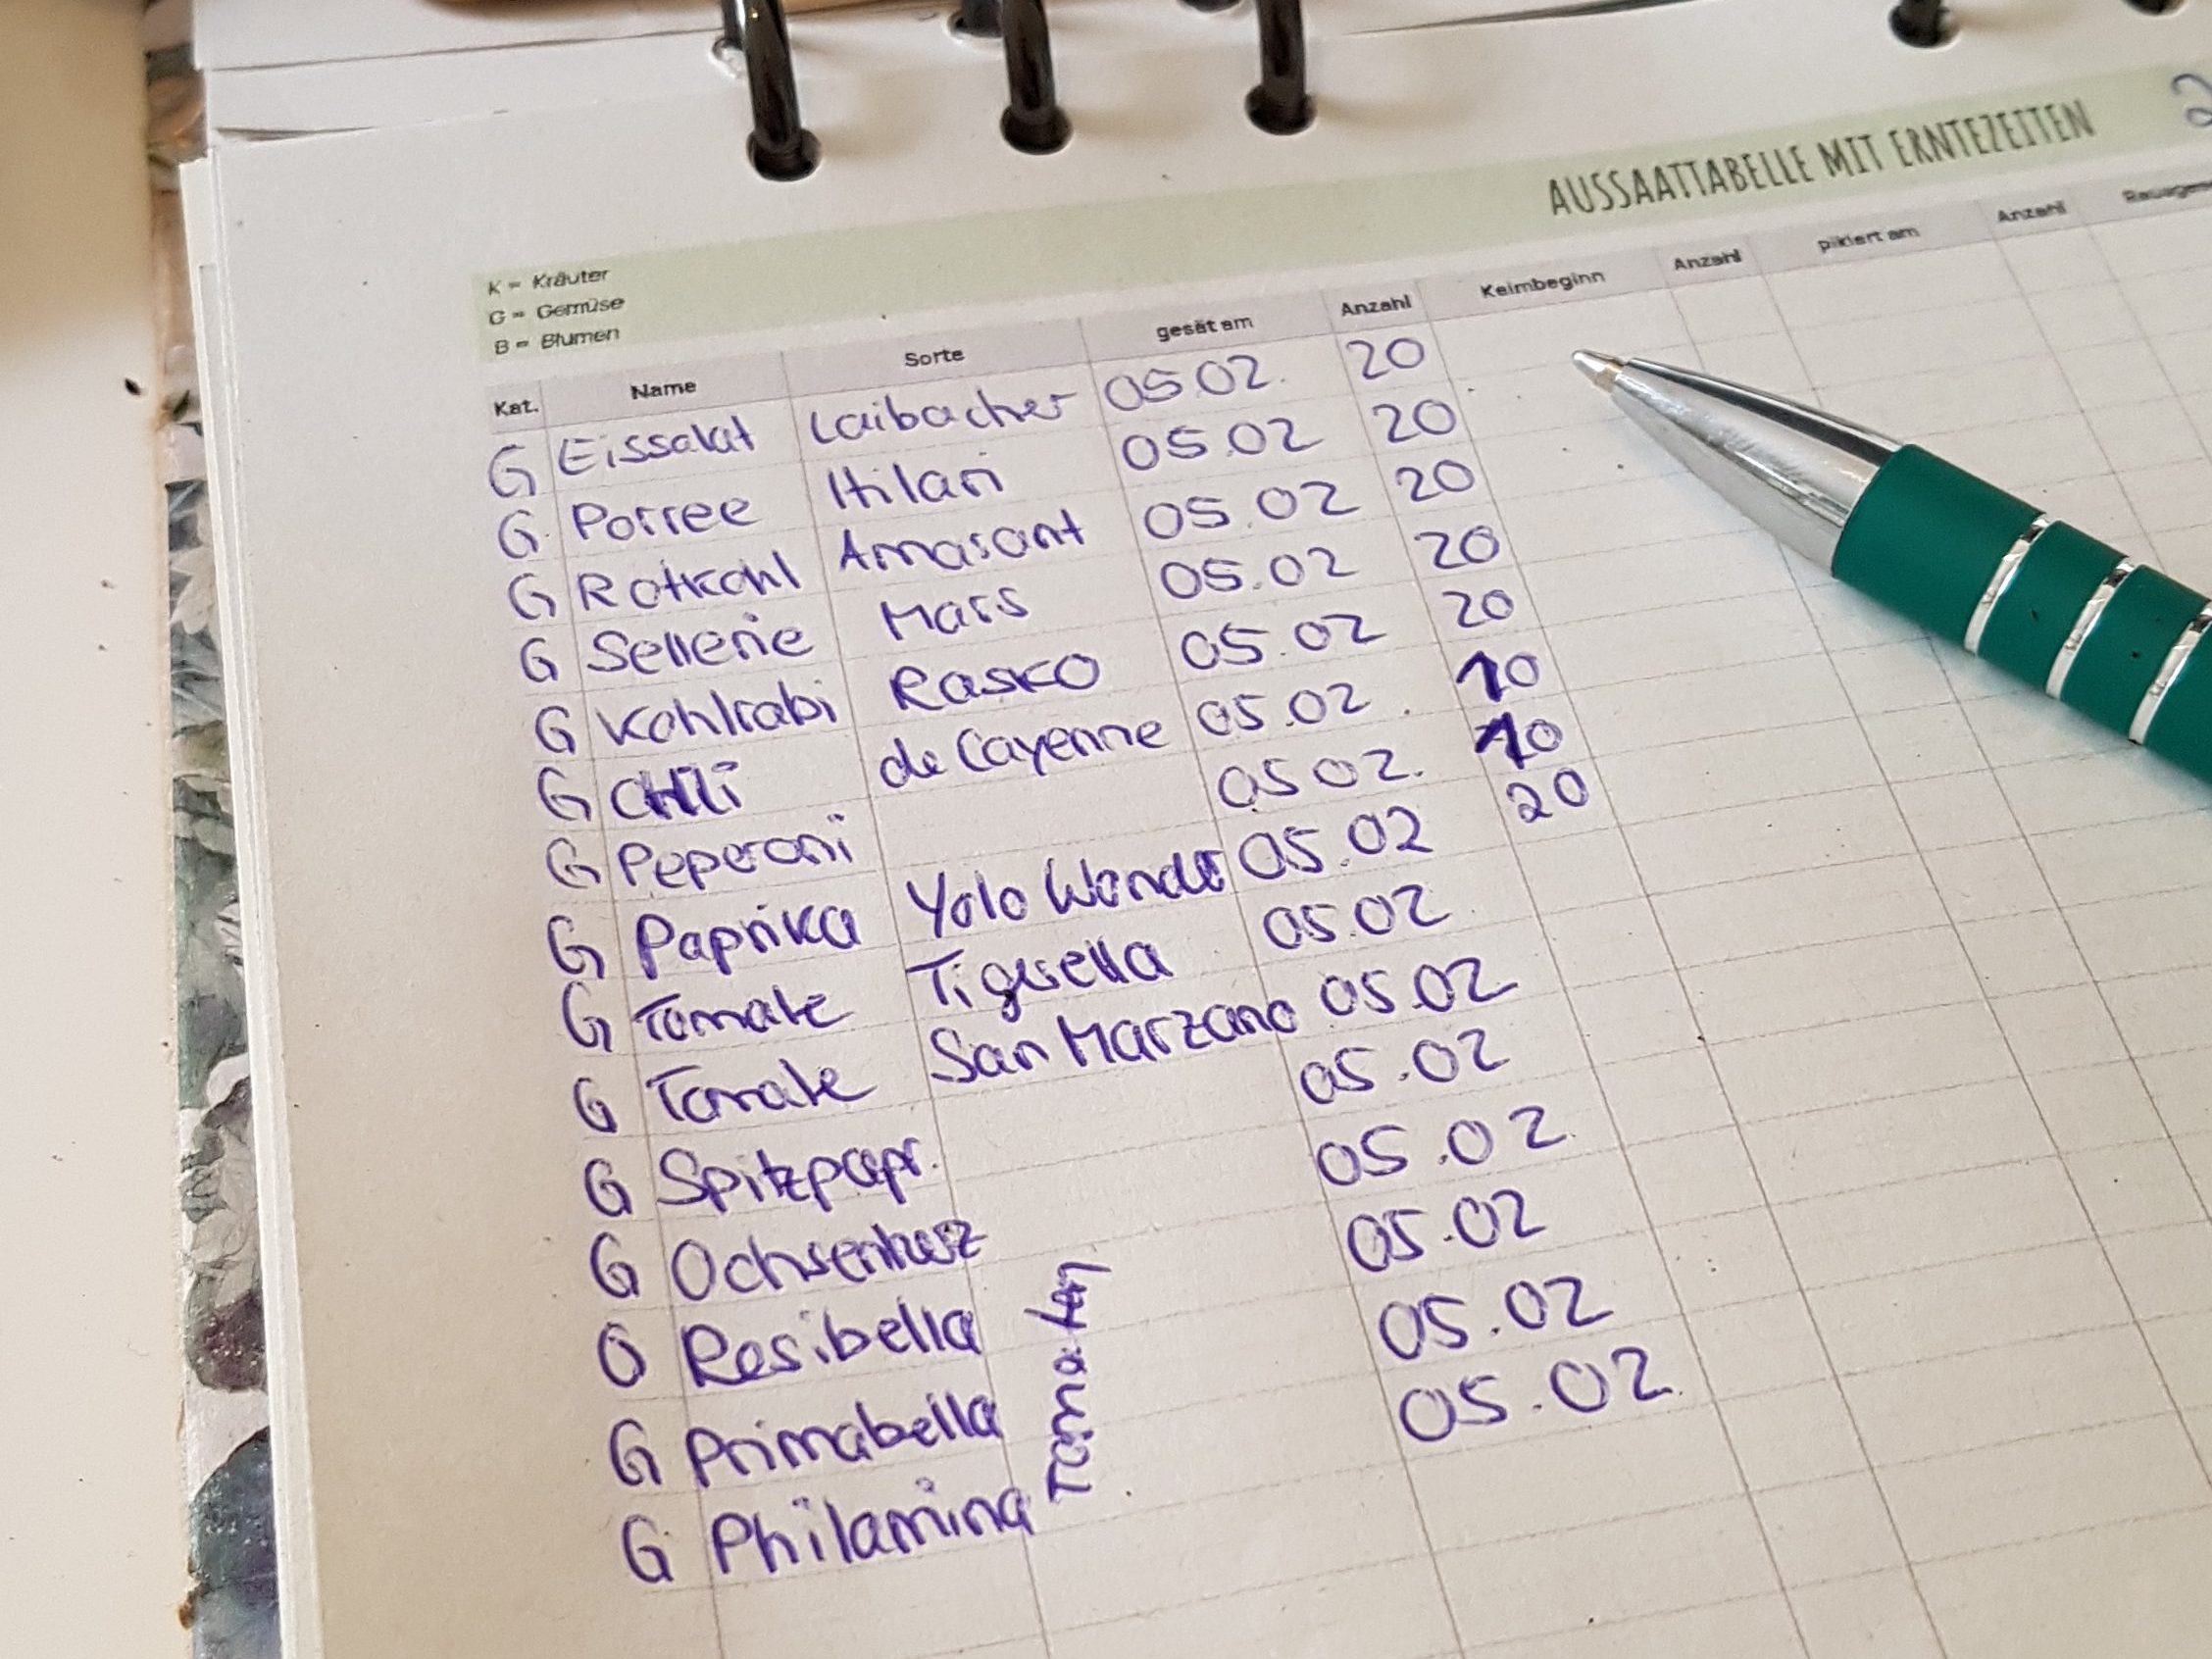 AUSSAATTABELLE MIT ERNTEZEITEN 2
K = Kräuter
G = Gemüse
B = Blumen
Kat. Name Sorte gesät am Anzahl Keimbeginn Anzahl pikiert am Anzahl
G Eissalat Laibacher 05.02. 20
G Porree Hilari 05.02 20
G Rotkohl Amarant 05.02 20
G Sellerie Mars 05.02 20
G Kohlrabi Rasko 05.02 20
G CHili de Cayenne 05.02. 10
G Peperoni 05 02. 10
G Paprika Yolo Wonder 05.02 20
G Tomate Tigerella 05.02
G Tomate San Marzano 05.02
G Spitzpapr. 05.02
G Ochsenherz 05.02
G Resibella 05.02
G Primabella 05.02
G Philamina 05.02
Tomaten